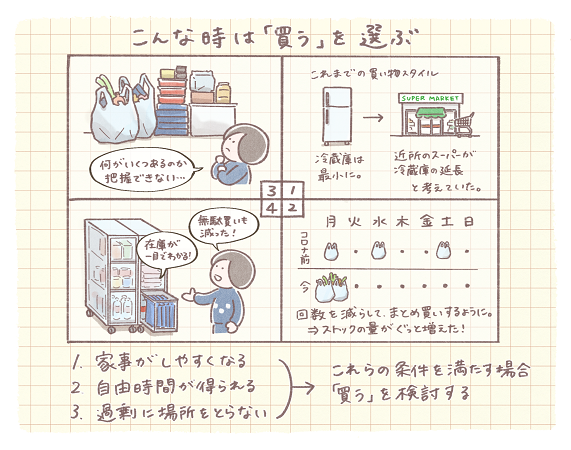 こんな時は「買う」を選ぶ
これまでの買い物スタイル
SUPER MARKET
冷蔵庫は
最小に。
近所のスーパーが
冷蔵庫の延長
と考えていた。
1
月 火 水 木 金 土 日
コロナ前
今
回数を減らして、まとめ買いするように。
⇒ストックの量がぐっと増えた!
2
何がいくつあるのか
把握できない…
3
無駄買いも
減った!
在庫が
一目でわかる!
4
1. 家事がしやすくなる
2. 自由時間が得られる
3. 過剰に場所をとらない
これらの条件を満たす場合
「買う」を検討する